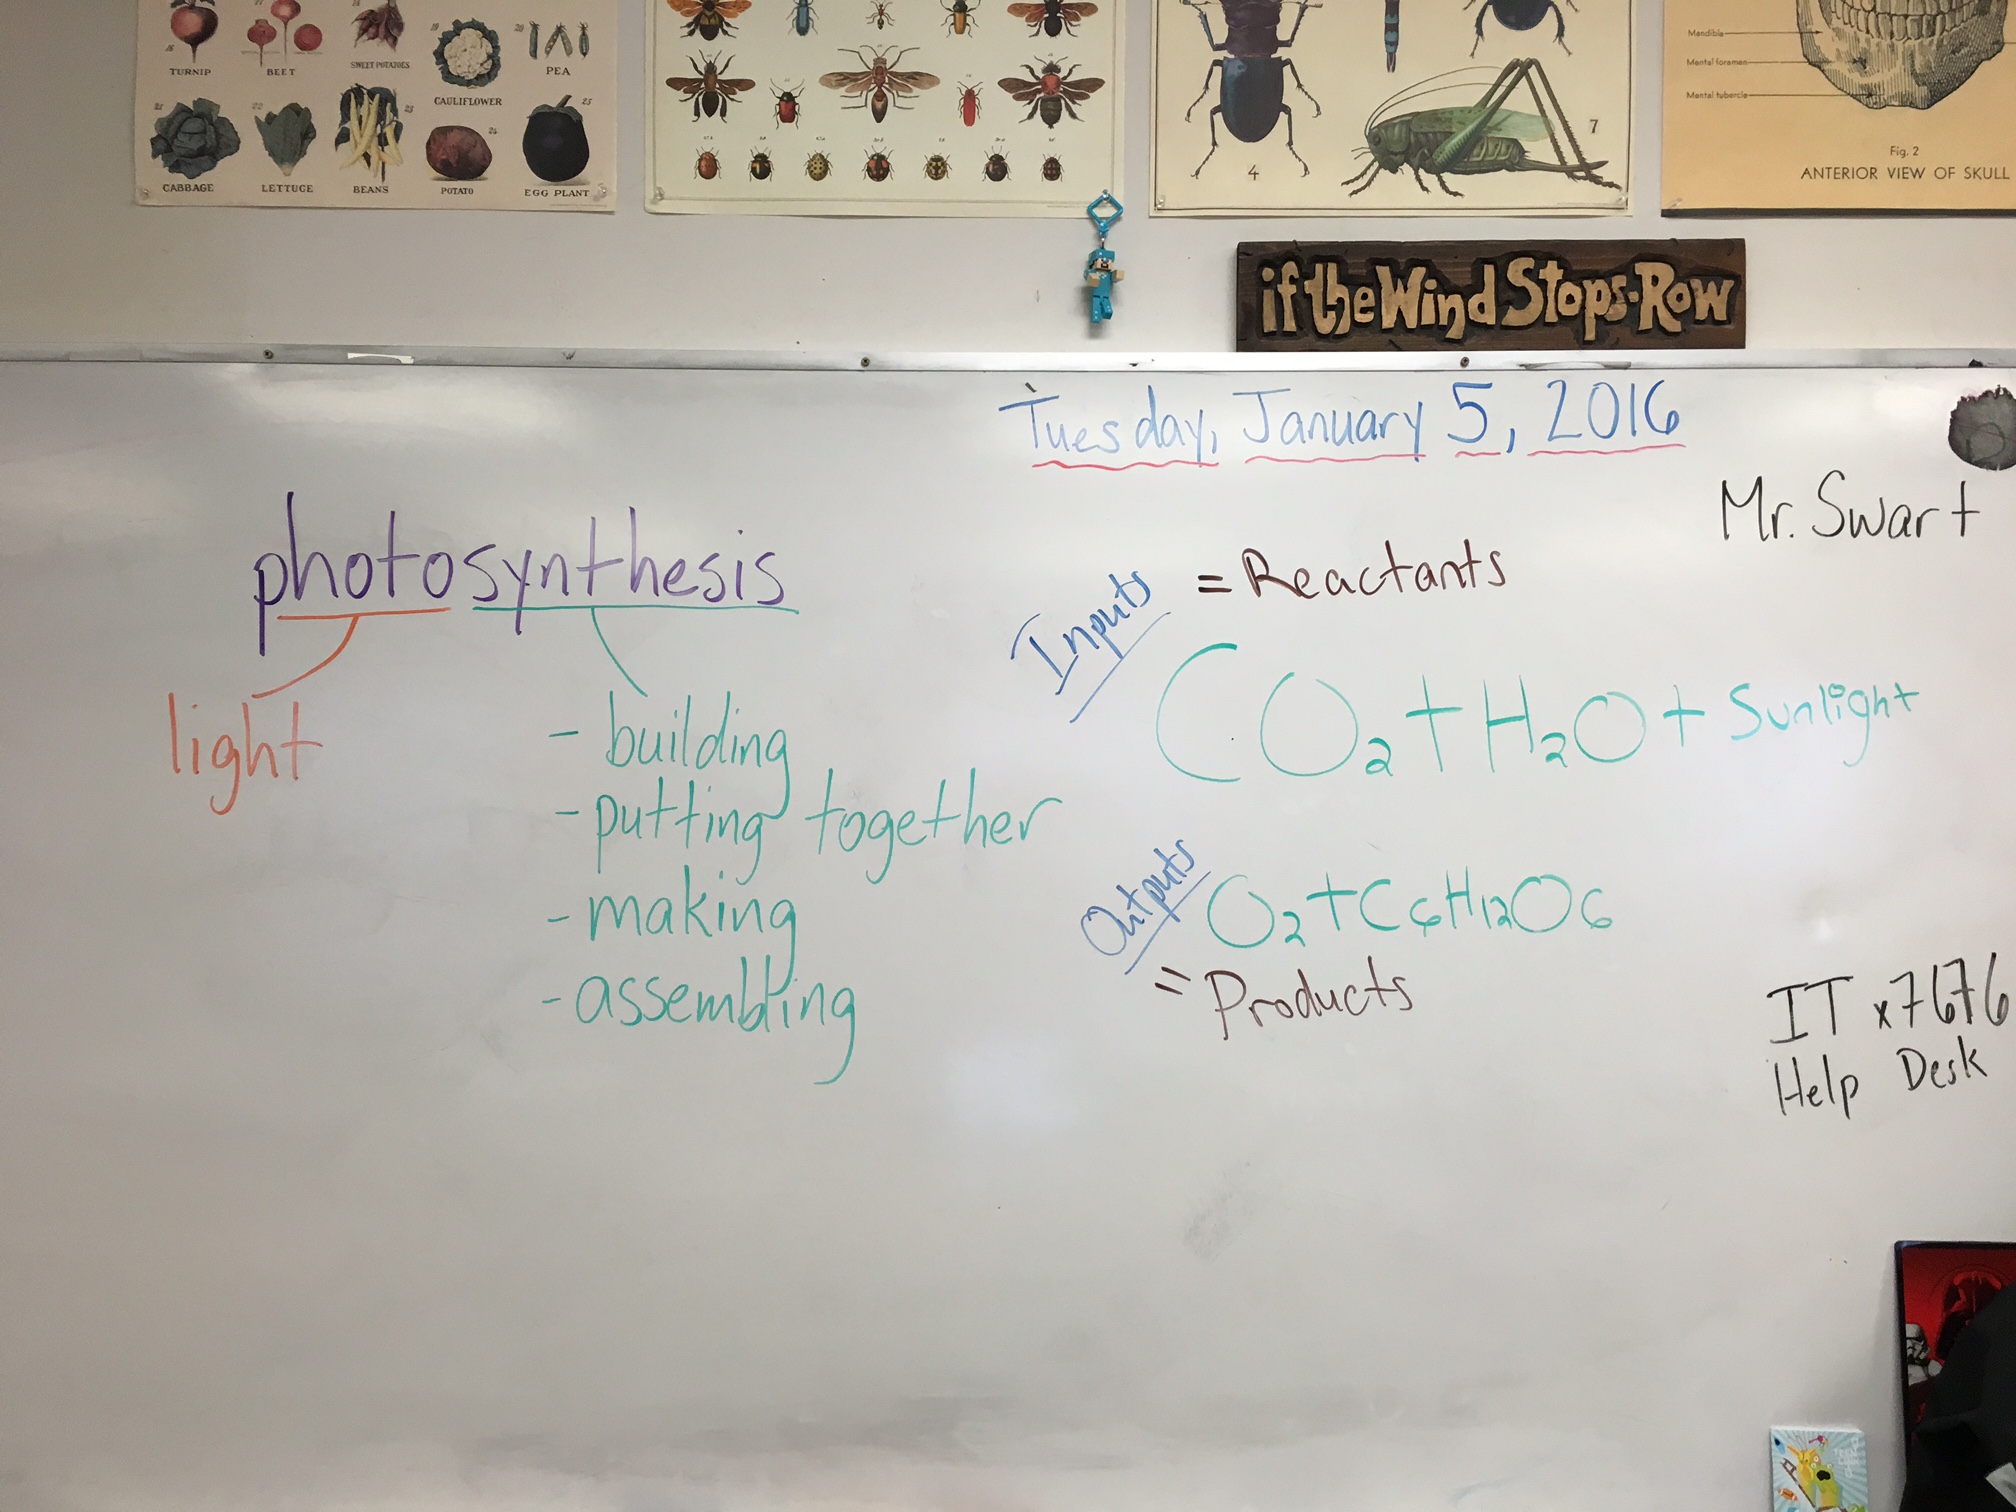 16
TURNIP
BEET
SWEET POTATOES
19
CAULIFLOWER
20
PEA
21
CABBAGE
22
LETTUCE
23
BEANS
24
POTATO
25
EGG PLANT
4
7
Mandible
Mental foramen
Mental tubercle
Fig. 2
ANTERIOR VIEW OF SKULL
if the Wind Stops-Row
Tuesday, January 5, 2016
Mr. Swart
photosynthesis
light
- building
- putting together
- making
- assembling
Inputs = Reactants
CO2 + H2O + Sunlight
Outputs O2 + C6H12O6
= Products
IT x7676
Help Desk